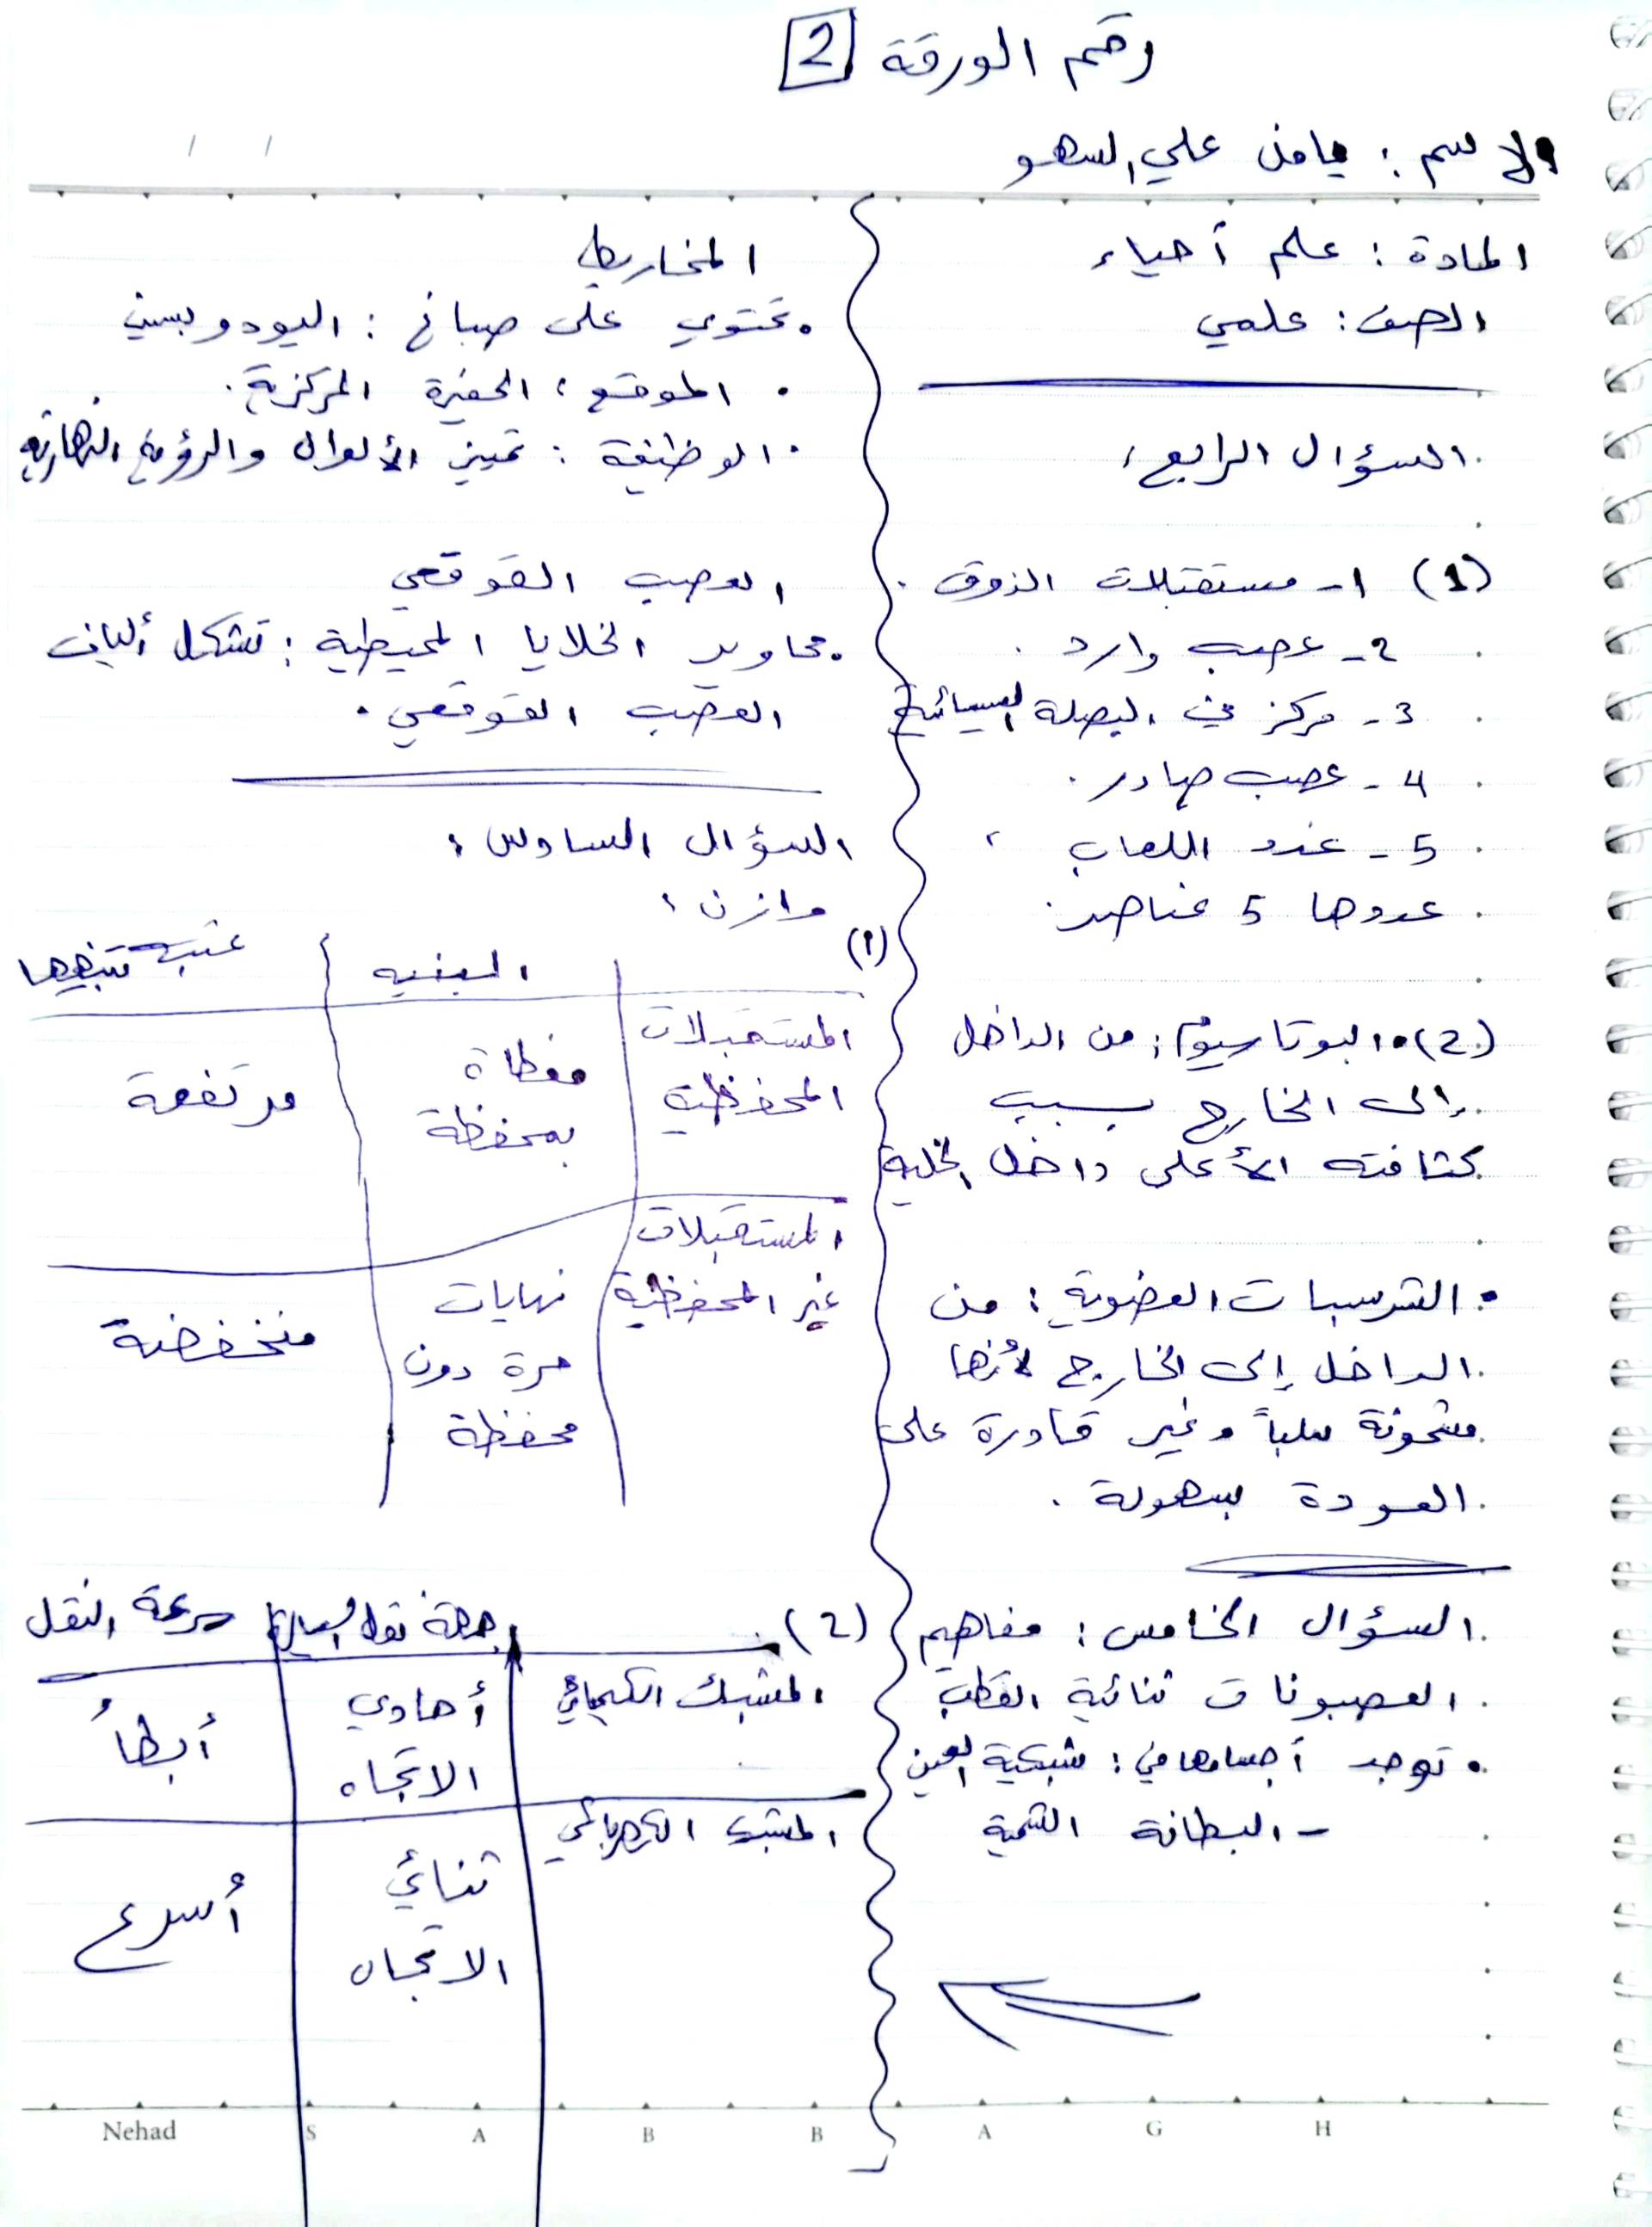 رقم الورقة 2
الاسم : يامن علي السهو
المادة : علم أحياء
الصف : علمي
السؤال الرابع :
(1) 1- مستقبلات الذوق .
2- عصب وارد .
3- مركز في البصلة السيسائية
4- عصب صادر .
5- غدد اللعاب .
عددها 5 عناصر .
(2) • البوتاسيوم : من الداخل
إلى الخارج بسبب
كثافته الأعلى داخل الخلية
• الشرسبات العضوية : من
الداخل إلى الخارج لأنها
مشحونة سلباً وغير قادرة على
العودة بسهولة .
السؤال الخامس : مفاهيم
العصبونات ثنائية القطب
• توجد أجسامها في : شبكية العين
- البطانة الشمية
المخاريط
• تحتوي على صباغ : اليودوبسين
• الموقع : الحفيرة المركزية .
• الوظيفة : تمييز الألوان والرؤية النهارية
العصب القوقعي
• محاوير الخلايا المحيطية : تشكل ألياف
العصب القوقعي .
السؤال السادس :
وازن :
(1)
البنية عتبة تنبيهها
المستقبلات المحفظية مغطاة بمحفظة مرتفعة
المستقبلات غير المحفظية نهايات حرة دون محفظة منخفضة
(2) جهة نقل السيالة سرعة النقل
المشبك الكيميائي أحادي الاتجاه أبطأ
المشبك الكهربائي ثنائي الاتجاه أسرع
Nehad S A B B A G H